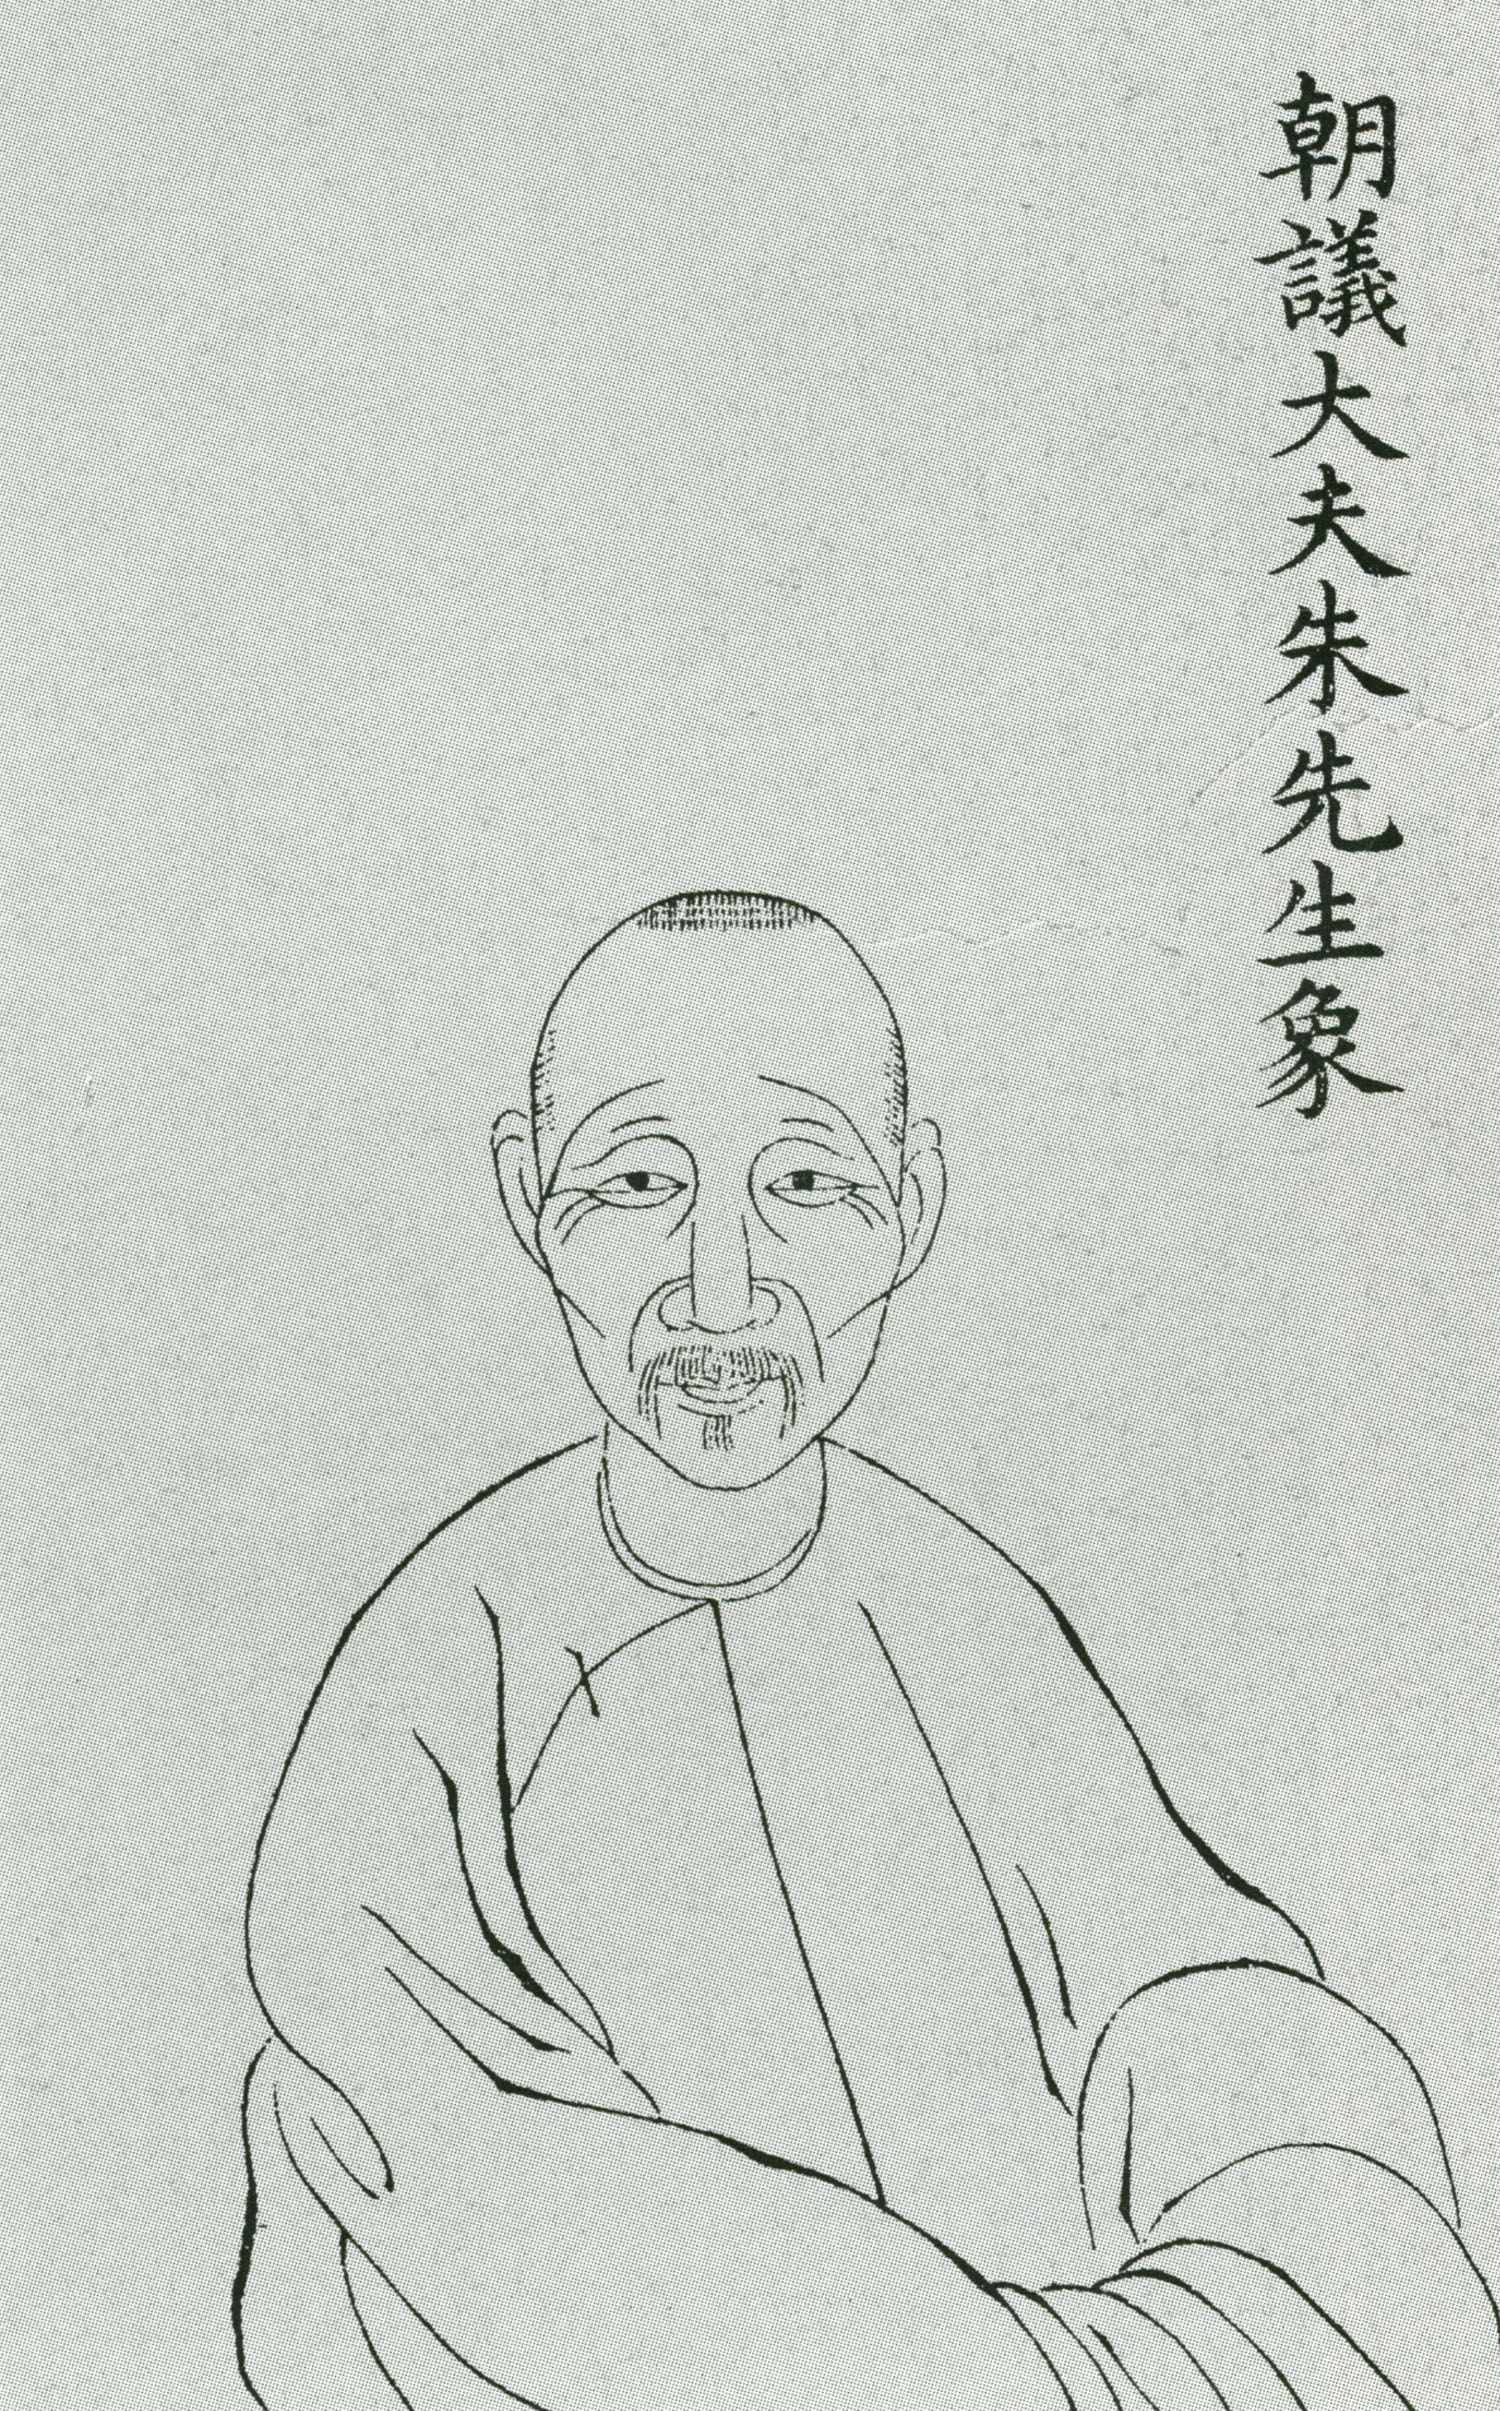 朝議大夫朱先生象